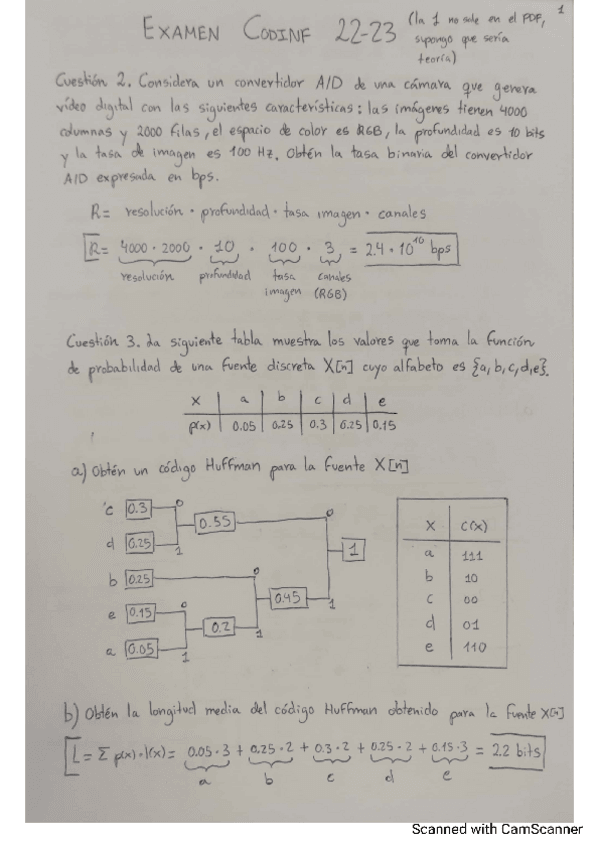 1
EXAMEN CODINF 22-23 (la 1 no sale en el PDF,
supongo que sería
teoría)
Cuestión 2. Considera un convertidor A/D de una cámara que genera
vídeo digital con las siguientes características: las imágenes tienen 4000
columnas y 2000 filas, el espacio de color es RGB, la profundidad es 10 bits
y la tasa de imagen es 100 Hz. Obtén la tasa binaria del convertidor
A/D expresada en bps.
R = resolución · profundidad · tasa imagen · canales
R = 4000 · 2000 · 10 · 100 · 3 = 2.4 · 10^10 bps
resolución profundidad tasa canales
imagen (RGB)
Cuestión 3. La siguiente tabla muestra los valores que toma la función
de probabilidad de una fuente discreta X[n] cuyo alfabeto es {a,b,c,d,e}.
x a b c d e
p(x) 0.05 0.25 0.3 0.25 0.15
a) Obtén un código Huffman para la fuente X[n]
c 0.3 0
0.55 0
d 0.25 1
1
b 0.25 0
0.45 1
e 0.15 0
0.2 1
a 0.05 1
x c(x)
a 111
b 10
c 00
d 01
e 110
b) Obtén la longitud media del código Huffman obtenido para la fuente X[n]
L = Σ p(x)·l(x) = 0.05·3 + 0.25·2 + 0.3·2 + 0.25·2 + 0.15·3 = 2.2 bits
a b c d e
Scanned with CamScanner